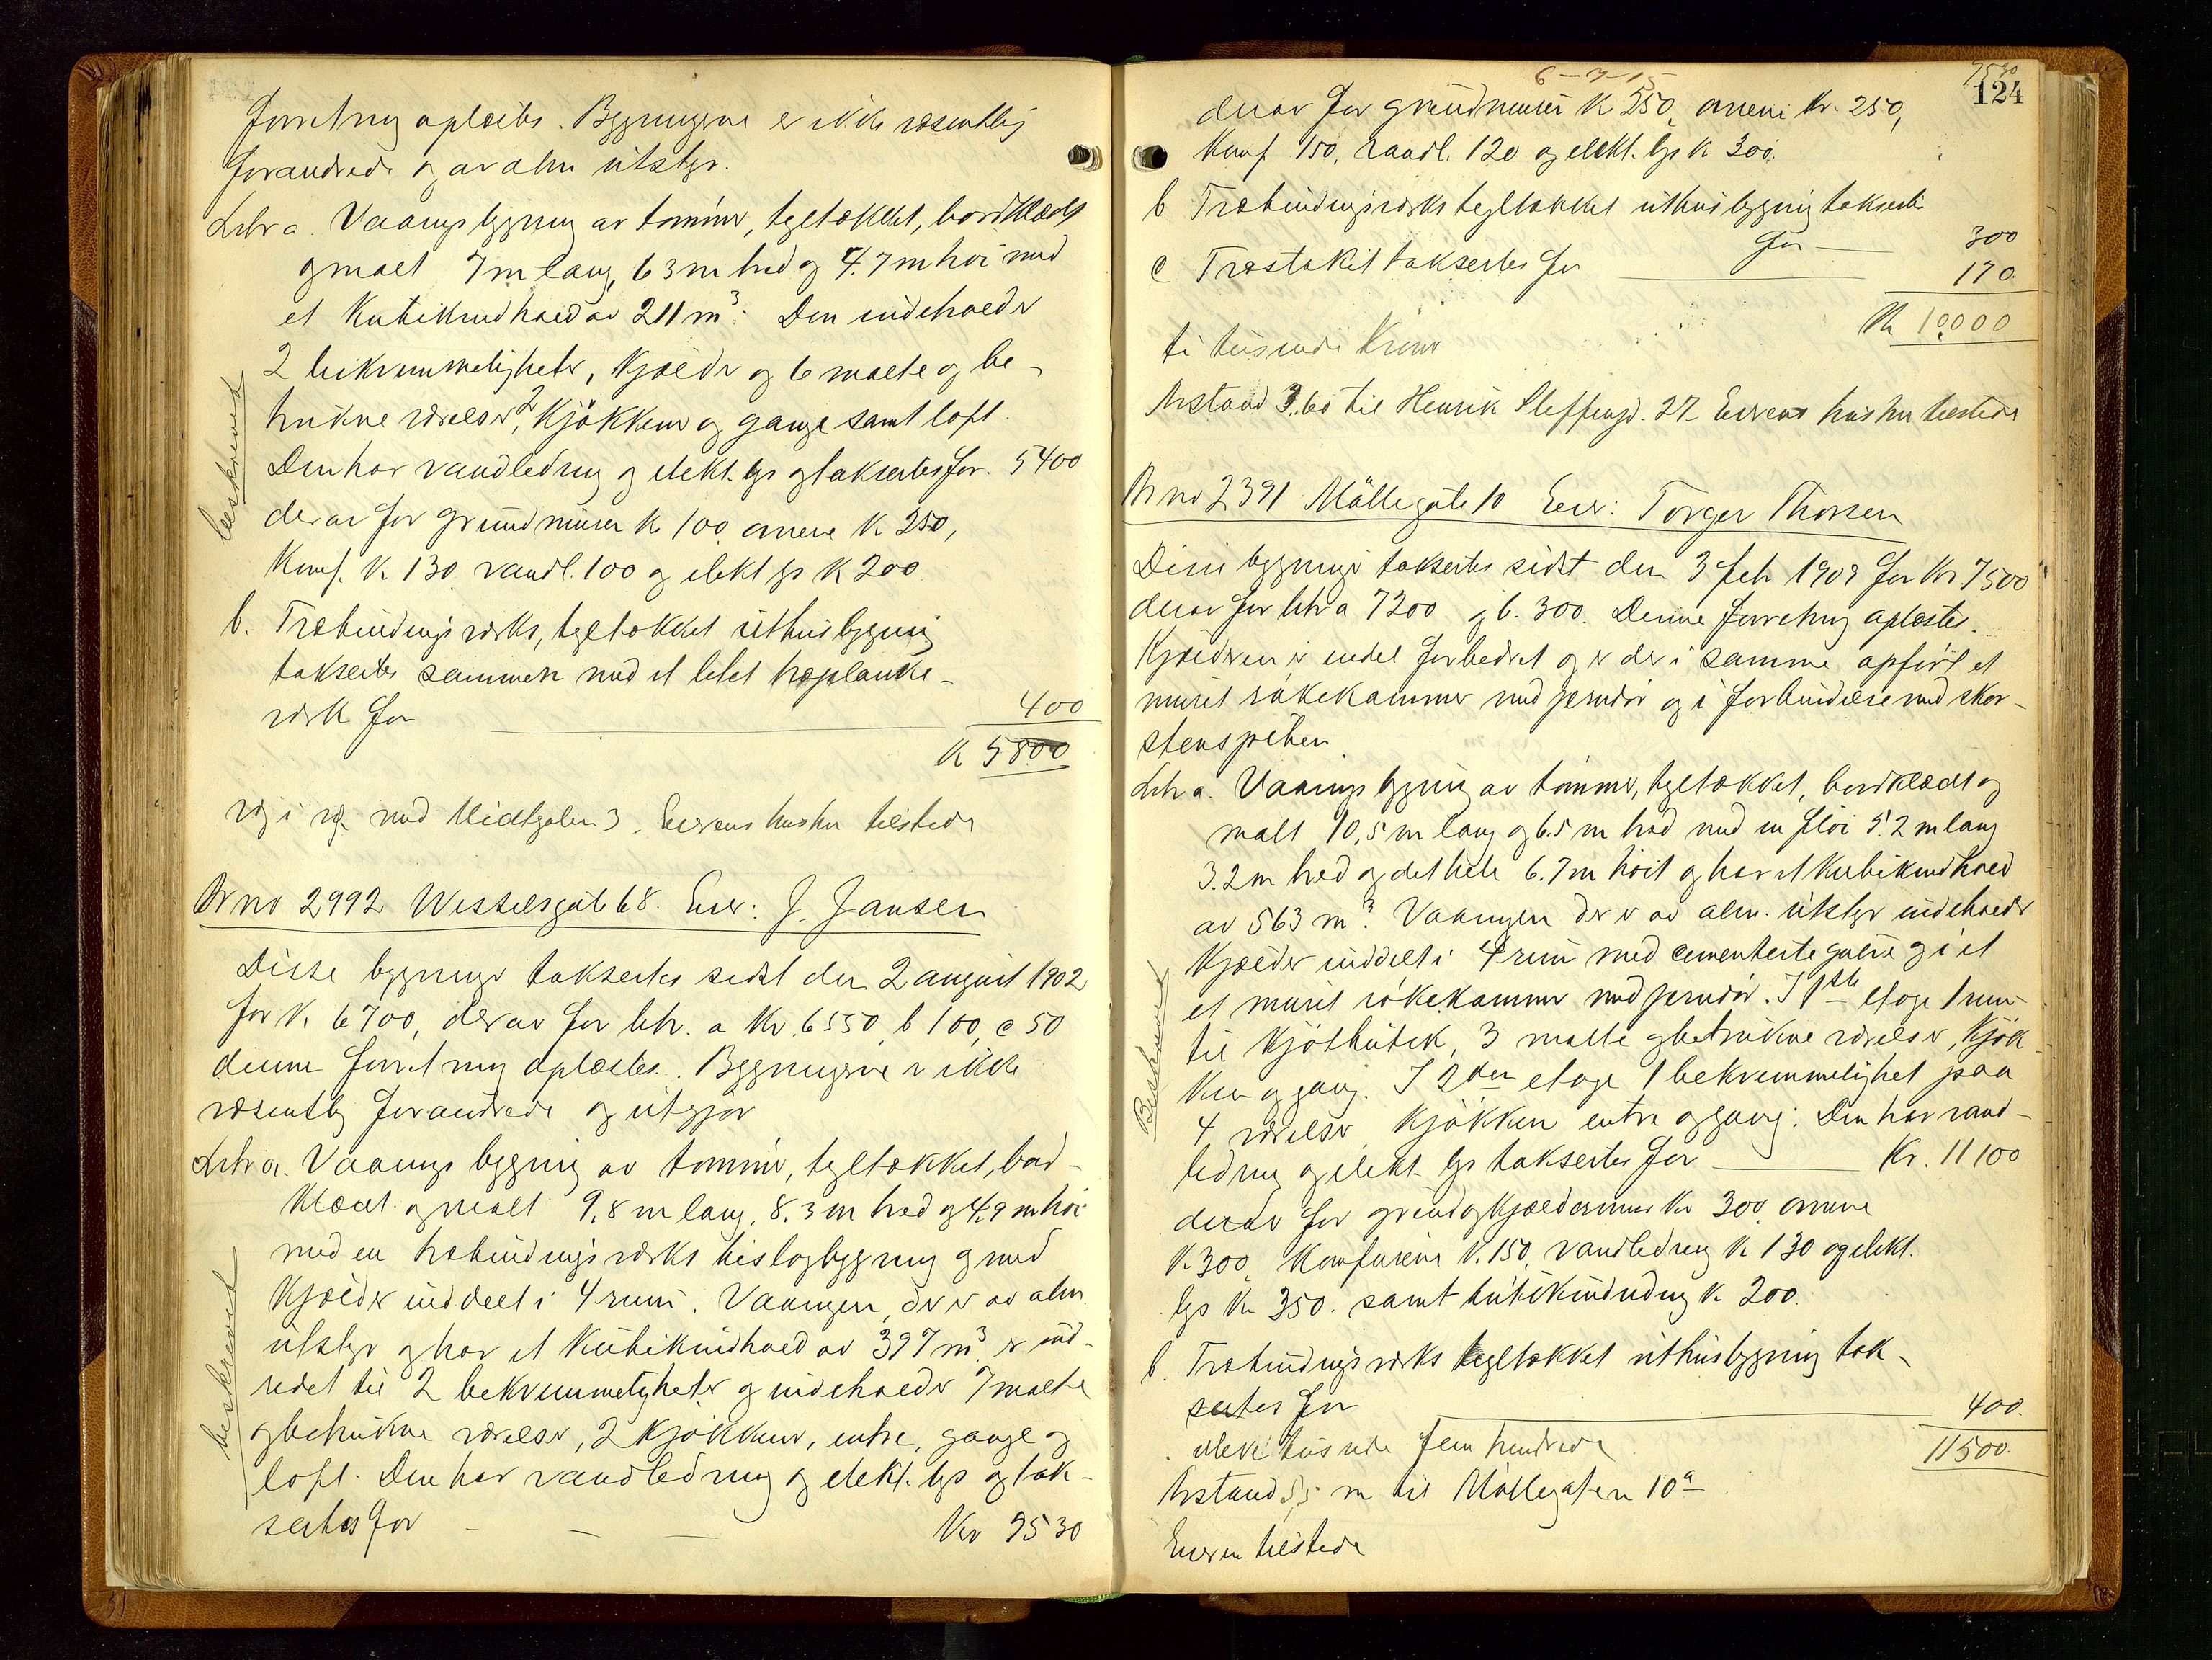 forretning oplæstes. Bygningerne er ikke væsentlig
forandrede og av alm utstyr.
Litr a. Vaanings bygning av tømmer, tegltækket, bordklædt
og malt 7 m lang, 6 3 m bred og 4.7 m høi med
et Kubikindhold av 211 m³. Den indeholder
2 bekvemmeligheter, Kjælder og 6 malte og be-
trukne værelser, 2 Kjøkkener og gange samt loft.
Den har vandledning og elekt. lys og takseres for. 5400
derav for grundmuren K 100 ovnene K 250,
Komf. K 130 vandl. 100 og elekt lys K 200
beskrevet
b. Træbindingsværks, tegltækket uthusbygning
takseres sammen med et litet træplanke-
værk for 400
K 5800
væg i væg med Midtgaten 3, Eierens hustru tilstede
Br no 2992 Wesselsgate 68. Eier: J. Jansen
Disse bygninger taksertes sidst den 2 august 1902
for K 6700, derav for litr. a Kr. 6550, b 100, c 50
denne forretning oplæstes. Bygningerne er ikke
væsentlig forandrede og utgjør
Litr a. Vaanings bygning av tømmer, tegltækket, bord-
klædt og malt 9,8 m lang, 8.3 m bred og 4,9 m høi
med en træbindingsværks bislagbygning og med
Kjælder inddelt i 4 rum. Vaaningen, der er av alm
utstyr og har et Kubikindhold av 397 m³ er ind-
redet til 2 bekvemmeligheter og indeholder 7 malte
og betrukne værelser, 2 Kjøkkener, entre, gange og
loft. Den har vandledning og elekt. lys og tak-
seres for Kr 9530
beskrevet
6-7-15
9530
124
derav for grundmuren K 250, ovnene Kr. 250,
Komf 150, vandl. 120 og elekt. lys K 300.
b Træbindingsværks tegltækket uthusbygning takseres
for 300
c Træstakit takseres for 170
K 10000
ti tusinde Kroner
Avstand 3.60 til Henrik Steffensgd. 27 Eierens hustru tilstede
Br no 2391 Møllegate 10 Eier: Torger Thorsen
Disse bygninger taksertes sidst den 3 feb 1909 for Kr 7500
derav for litr a 7200 og b. 300. Denne forretning oplæstes.
Kjælderen er endel forbedret og er der i samme opført et
muret røkekammer med jerndør og i forbindelse med skor-
stenspiben
Litr a. Vaanings bygning av tømmer, tegltækket, bordklædt og
malt 10,5 m lang og 6.5 m bred med en fløi 5.2 m lang
3.2 m bred og det hele 6.7 m høit og har et Kubikindhold
av 563 m³. Vaaningen der er av alm. utstyr indeholder
Kjælder inddelt i 4 rum med cementerte gulve og i et
et muret røkekammer med jerndør. I 1ste etage 1 rum
til Kjøtbutik, 3 malte og betrukne værelser, Kjøk
ken og gang. I 2den etage 1 bekvemmelighet paa
4 værelser Kjøkken entre og gang. Den har vand-
ledning og elekt. lys takseres for Kr. 11100
derav for grund og Kjældermur Kr 300 ovnene
K 300 Komfurene K. 150, vandledning K 130 og elekt.
lys Kr 350. samt butikindredning K 200.
Beskrevet
b. Træbindingsværks tegltækket uthusbygning tak-
seres for 400.
elleve tusinde fem hundrede 11500.
Avstand 5,5 m til Møllegaten 10a
Eieren tilstede